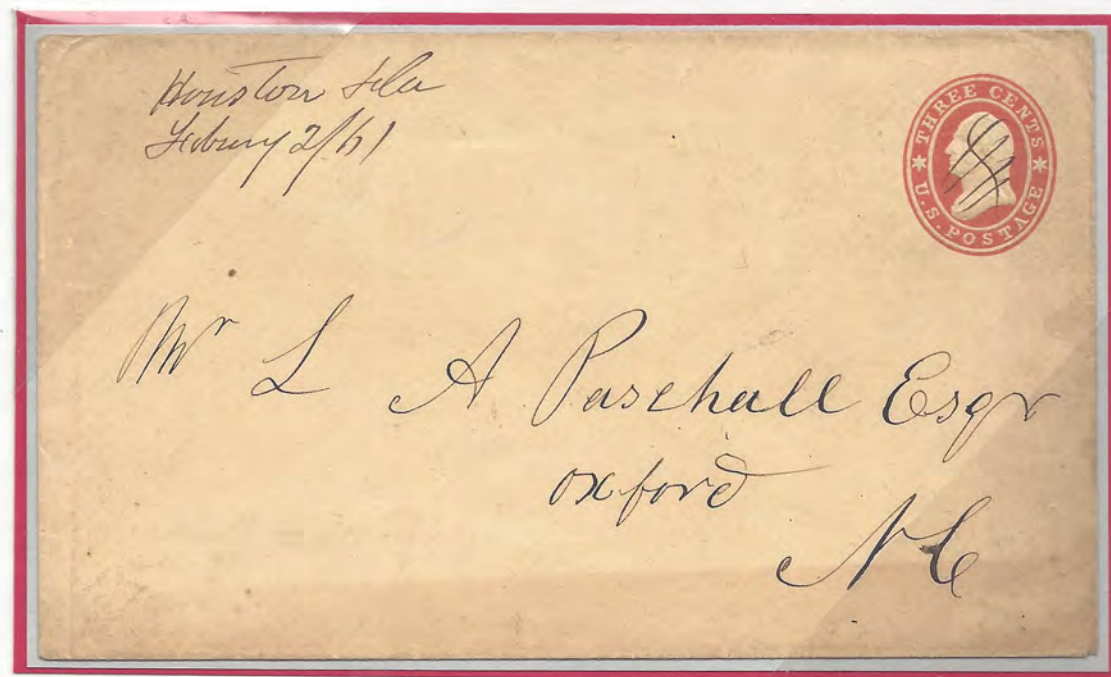 Houston Fla
Febury 2/61
THREE CENTS
U.S. POSTAGE
Mr L A Paschall Esqr
oxford
N C